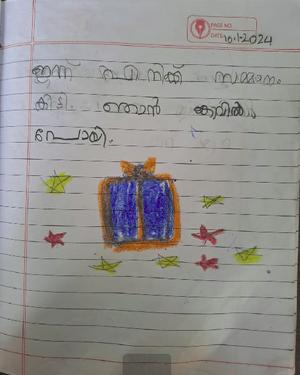 PAGE NO.
DATE: 10-1-2024
ഇന്ന് എനിക്ക് സമ്മാനം
കിട്ടി. ഞാൻ
പോയി.